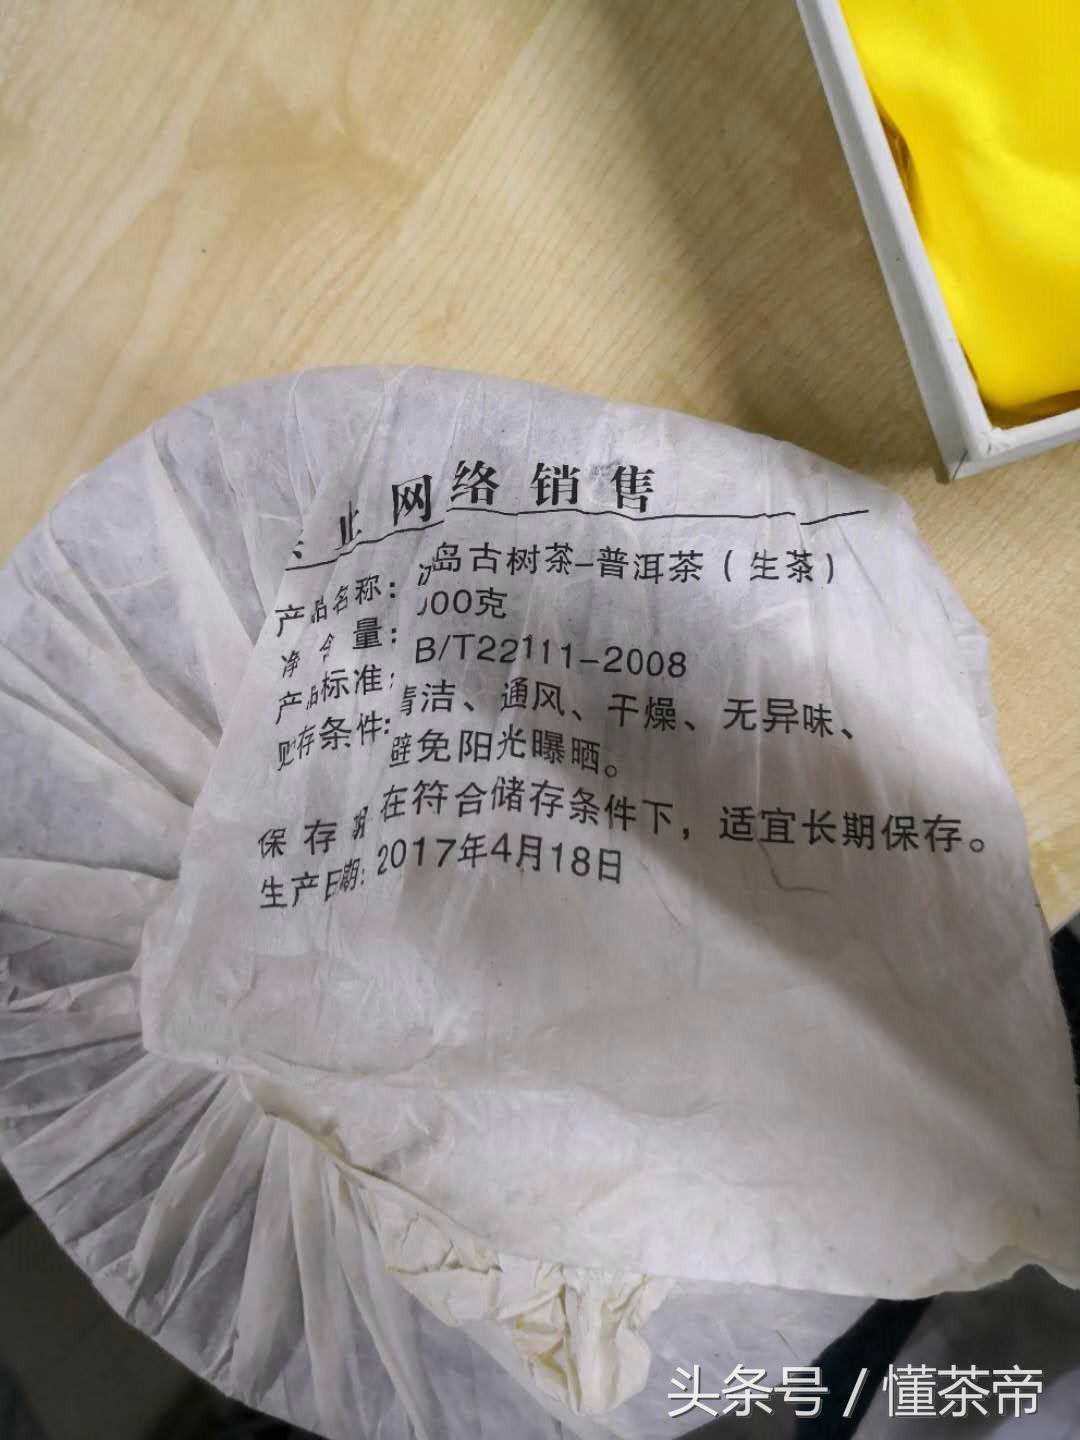 止网络销售
产品名称：岛古树茶-普洱茶（生茶）
净含量：00克
产品标准：B/T22111-2008
贮存条件：清洁、通风、干燥、无异味、
避免阳光曝晒。
保存期 在符合储存条件下，适宜长期保存。
生产日期：2017年4月18日
头条号 / 懂茶帝